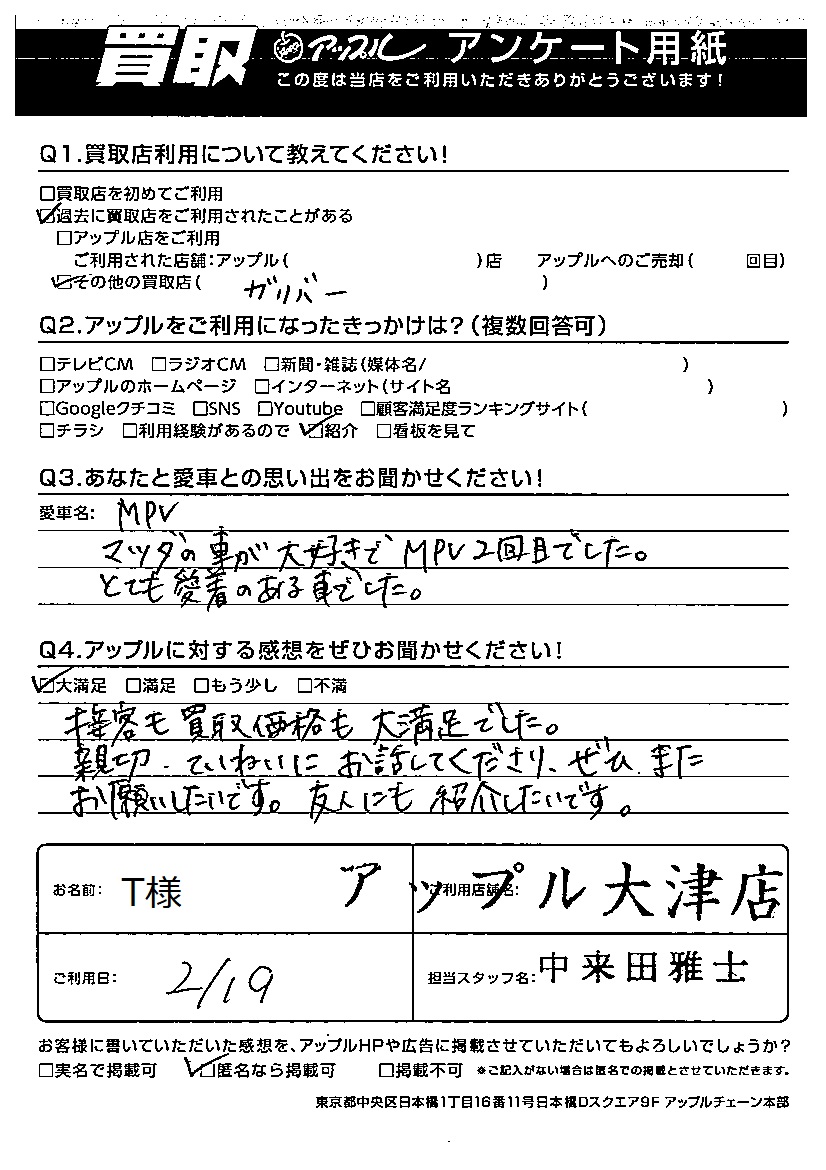 買取 アップル アンケート用紙
この度は当店をご利用いただきありがとうございます!
Q1.買取店利用について教えてください!
□買取店を初めてご利用
☑過去に買取店をご利用されたことがある
□アップル店をご利用
ご利用された店舗:アップル( )店 アップルへのご売却( 回目)
☑その他の買取店( ガリバー )
Q2.アップルをご利用になったきっかけは?(複数回答可)
□テレビCM □ラジオCM □新聞・雑誌(媒体名/ )
□アップルのホームページ □インターネット(サイト名 )
□Googleクチコミ □SNS □Youtube □顧客満足度ランキングサイト( )
□チラシ □利用経験があるので ☑紹介 □看板を見て
Q3.あなたと愛車との思い出をお聞かせください!
愛車名: MPV
マツダの車が大好きで MPV 2回目でした。
とても愛着のある車でした。
Q4.アップルに対する感想をぜひお聞かせください!
☑大満足 □満足 □もう少し □不満
接客も買取価格も大満足でした。
親切・ていねいにお話してくださり、ぜひまた
お願いしたいです。友人にも紹介したいです。
お名前: T様 ご利用店舗名: アップル大津店
ご利用日: 2/19 担当スタッフ名: 中来田雅士
お客様に書いていただいた感想を、アップルHPや広告に掲載させていただいてもよろしいでしょうか?
□実名で掲載可 ☑匿名なら掲載可 □掲載不可 ※ご記入がない場合は匿名での掲載とさせていただきます。
東京都中央区日本橋1丁目16番11号日本橋Dスクエア9F アップルチェーン本部